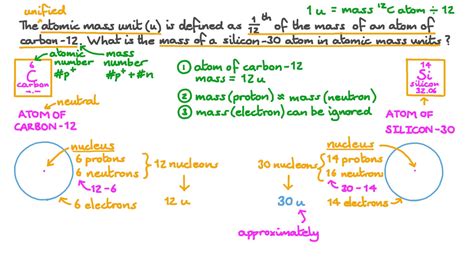 unified
1 u = mass ¹²C atom ÷ 12
The atomic mass unit (u) is defined as 1/12 th of the mass of an atom of
carbon-12. What is the mass of a silicon-30 atom in atomic mass units ?
6
C
carbon
atomic number
#p⁺
mass number
#p⁺ + #n
neutral
① atom of carbon-12
mass = 12 u
② mass (proton) ≈ mass (neutron)
③ mass (electron) can be ignored
14
Si
silicon
32.06
ATOM OF
CARBON-12
ATOM OF
SILICON-30
nucleus
6 protons
6 neutrons
12-6
6 electrons
12 nucleons
12 u
30 nucleons
30 u
approximately
nucleus
14 protons
16 neutron
30-14
14 electrons